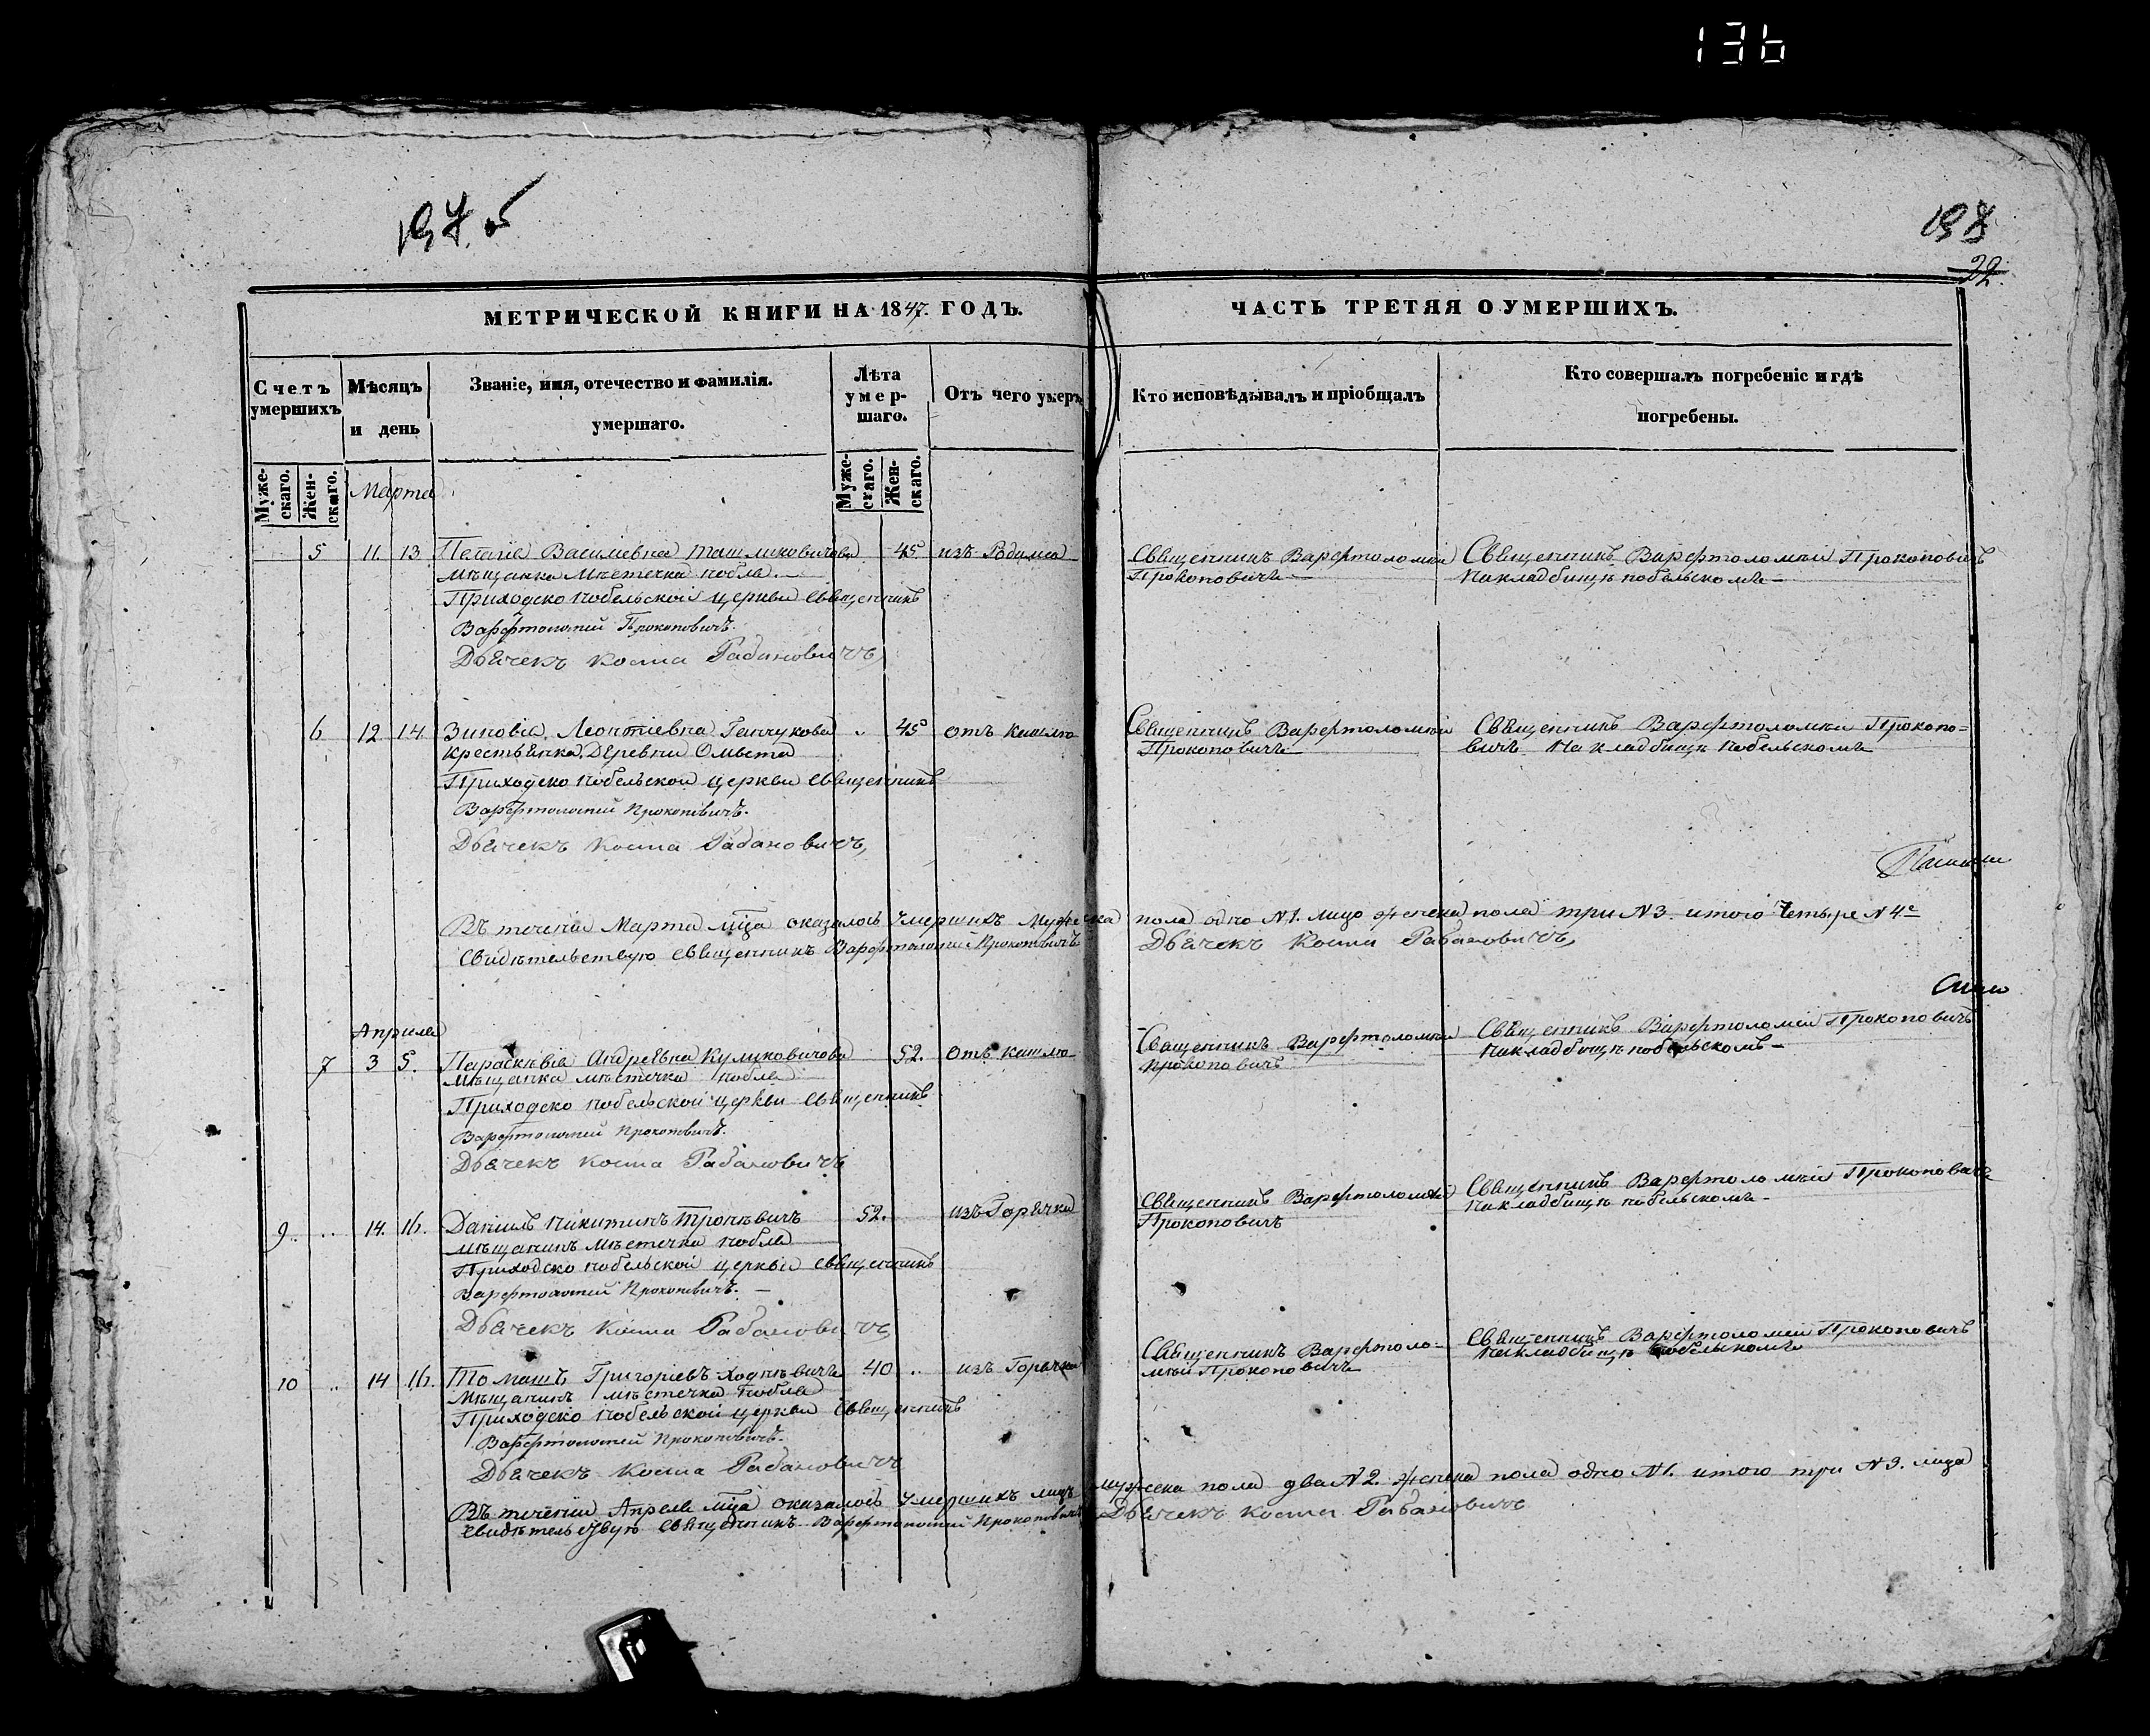 136
197. об
198
32.
МЕТРИЧЕСКОЙ КНИГИ НА 1847. ГОДЪ.
ЧАСТЬ ТРЕТЯЯ О УМЕРШИХЪ.
Счетъ умершихъ
Мѣсяцъ и день
Званіе, имя, отечество и фамилія.
умершаго.
Лѣта умершаго.
Отъ чего умеръ
Кто исповѣдывалъ и пріобщалъ
Кто совершалъ погребеніе и гдѣ
погребены.
Мужескаго.
Женскаго.
Мужескаго.
Женскаго.
Марта
5 11. 13. Пелагіа Василиевна 45 изъ Родимца
Мѣщанка Мѣстечка Нобля.
Приходско Нобельской церкви Священникъ
Варфтоломей Прокоповичъ.
Дьячекъ Косма Рабановичъ,
Священникъ Варфтоломѣй
Прокоповичъ
Священникъ Варфтоломѣй Прокоповичъ
На кладбищѣ нобельскомъ
6 12 14 Зиновіа Леонтіевна Ганчукова 45 отъ кашлю
крестьянка Деревни Омыта
Приходско Нобельской церкви Священникъ
Варфтоломей Прокоповичъ.
Дьячекъ Косма Рабановичъ,
Священникъ Варфтоломѣй
Прокоповичъ
Священникъ Варфтоломѣй Прокопо=
вичъ На кладбищѣ Нобельскомъ
Въ теченіе Марта мца оказалось Умершихъ Мужеска пола одно N 1. лицо женска пола три N 3. итого Четыре N 4.
Свидѣтельствую Священникъ Варфтоломей Прокоповичъ
Дьячекъ Косма Рабановичъ,
Априля
7 3 5. Параскѣвіа Андреевна Куликовичова 52. отъ кашлю
Мѣщанка мѣстечка Нобля
Приходско Нобельской церкви Священникъ
Варфтоломей Прокоповичъ.
Дьячекъ Косма Рабановичъ
Священникъ Варфтоломѣй
Прокоповичъ
Священникъ Варфтоломей Прокоповичъ
На кладбищѣ нобельскомъ
9. .. 14. 16. Даниилъ Никитинъ Тронѣвичъ 52. изъ Горячки
мѣщанинъ Мѣстечка Нобля
Приходско Нобельской церкви Священникъ
Варфтоломей Прокоповичъ.
Дьячекъ Косма Рабановичъ,
Священникъ Варфтоломѣй
Прокоповичъ
Священникъ Варфтоломѣй Прокоповичъ
На кладбищѣ нобельскомъ
10 .. 14 16. Томашъ Григоріевъ Ходнѣвичъ 40 .. изъ Горячки
Мѣщанинъ мѣстечка Нобля
Приходско Нобельской церкви Священникъ
Варфтоломей Прокоповичъ.
Дьячекъ Косма Рабановичъ
Священникъ Варфтоло-
мѣй Прокоповичъ
Священникъ Варфтоломей Прокоповичъ
На кладбищѣ нобельскомъ
Въ теченіи Апреля мца оказалось Умершихъ лицъ мужеска пола два N 2. женска пола одно N 1. итого три N 3. лица
Свидѣтельствую Священникъ Варфтоломей Прокоповичъ Дьячекъ Косма Рабановичъ